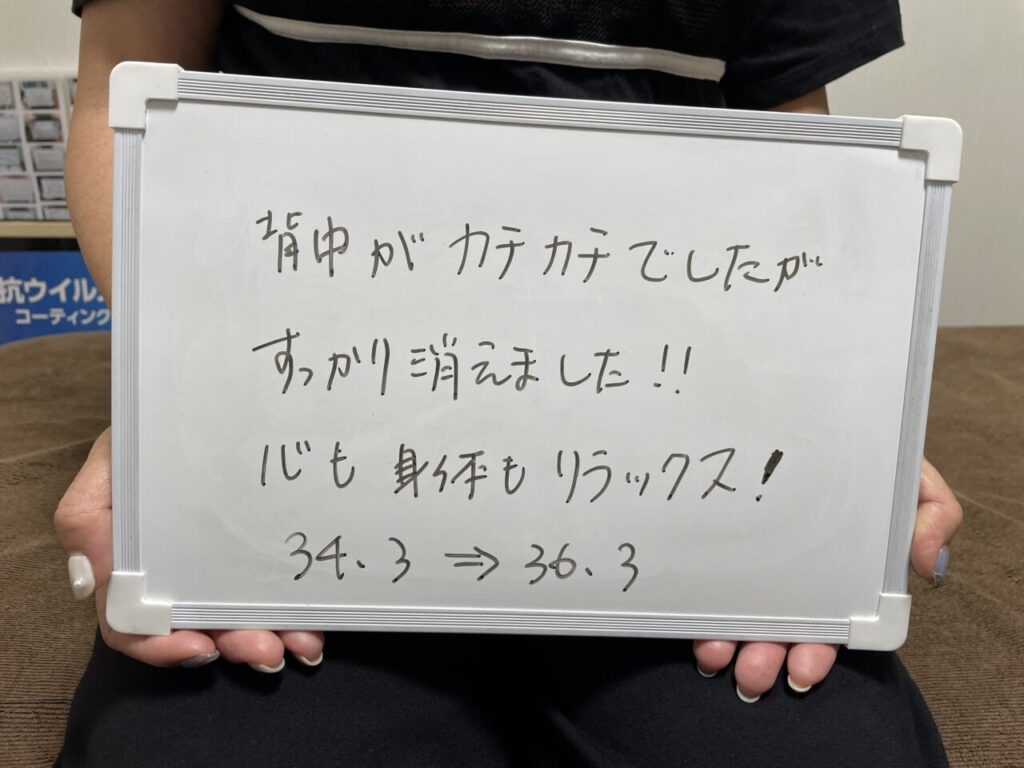 背中がカチカチでしたが
すっかり消えました!!
心も身体もリラックス!
34.3 ⇒ 36.3
抗ウイル
コーティング